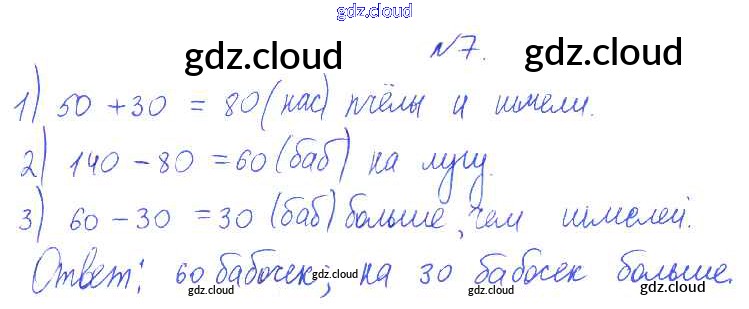 gdz.cloud
gdz.cloud №7. gdz.cloud
1) 50 + 30 = 80 (нас) пчёлы и шмели.
2) 140 - 80 = 60 (баб) на лугу.
3) 60 - 30 = 30 (баб) больше, чем шмелей.
Ответ: 60 бабочек; на 30 бабосек больше.
gdz.cloud gdz.cloud gdz.cloud gdz.cloud